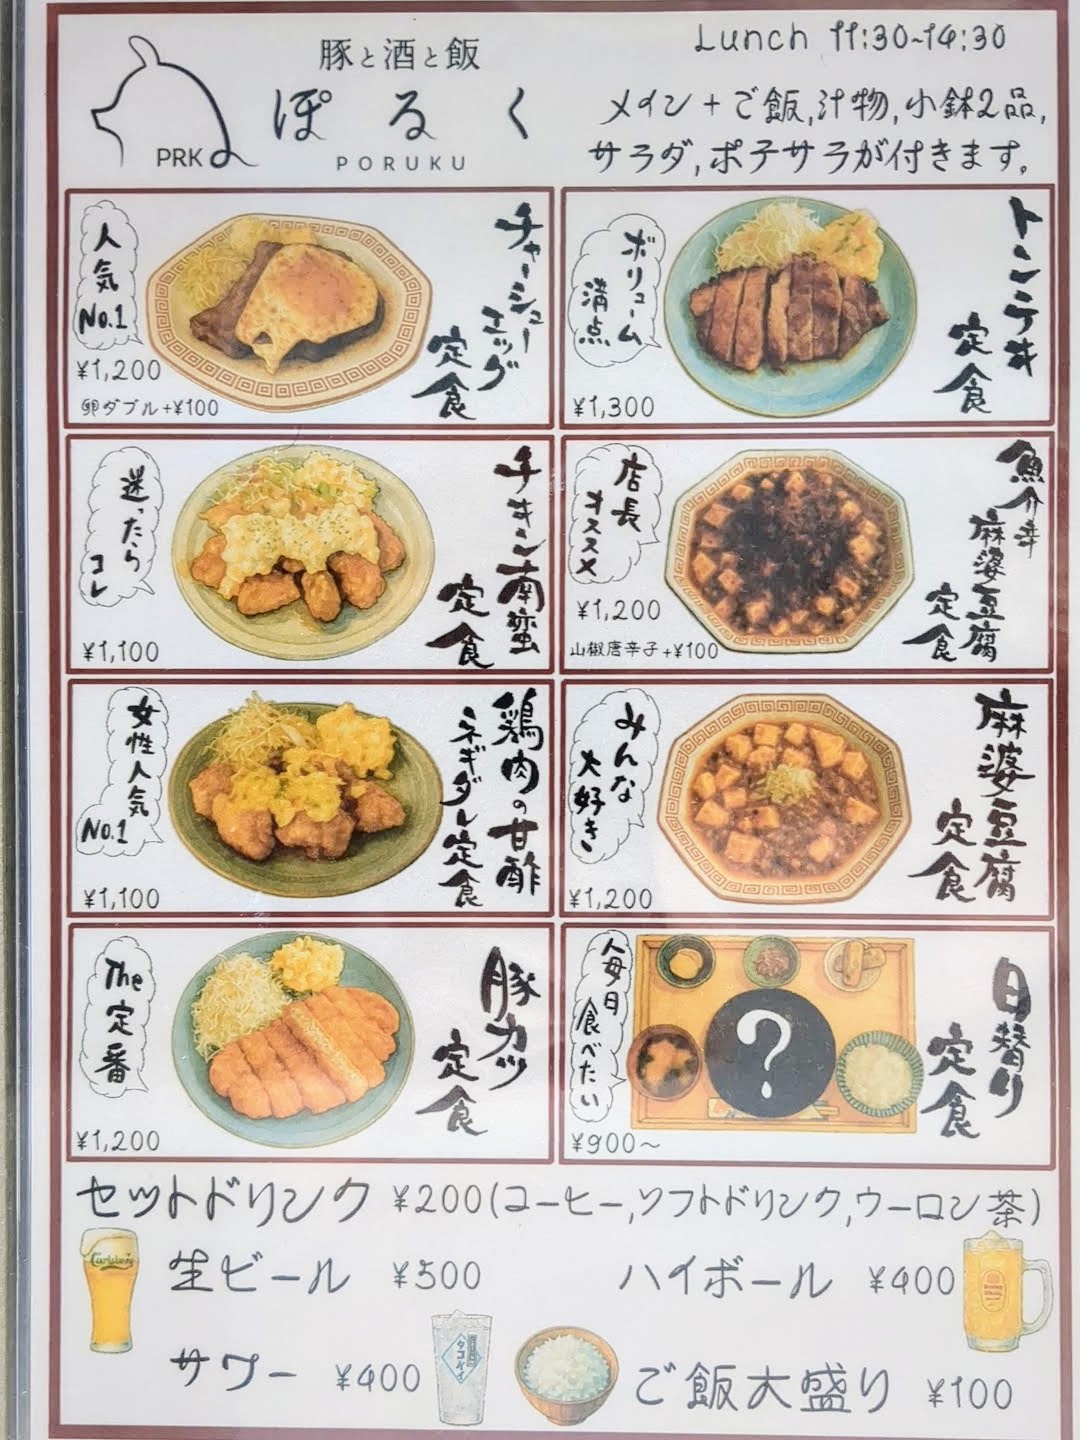 豚と酒と飯
ぽるく
PRK
PORUKU
Lunch 11:30~14:30
メイン+ご飯,汁物,小鉢2品,
サラダ,ポテサラが付きます。
人気No.1
チャーシューエッグ定食
¥1,200
卵ダブル+¥100
ボリューム満点
トンテキ定食
¥1,300
迷ったらコレ
チキン南蛮定食
¥1,100
店長オススメ
魚介辛麻婆豆腐定食
¥1,200
山椒唐辛子+¥100
女性人気No.1
鶏肉の甘酢ネギダレ定食
¥1,100
みんな大好き
麻婆豆腐定食
¥1,200
The定番
豚カツ定食
¥1,200
毎日食べたい
?
日替り定食
¥900~
セットドリンク ¥200(コーヒー,ソフトドリンク,ウーロン茶)
Carlsberg
生ビール ¥500
ハイボール ¥400
サワー ¥400
タコハイ
ご飯大盛り ¥100